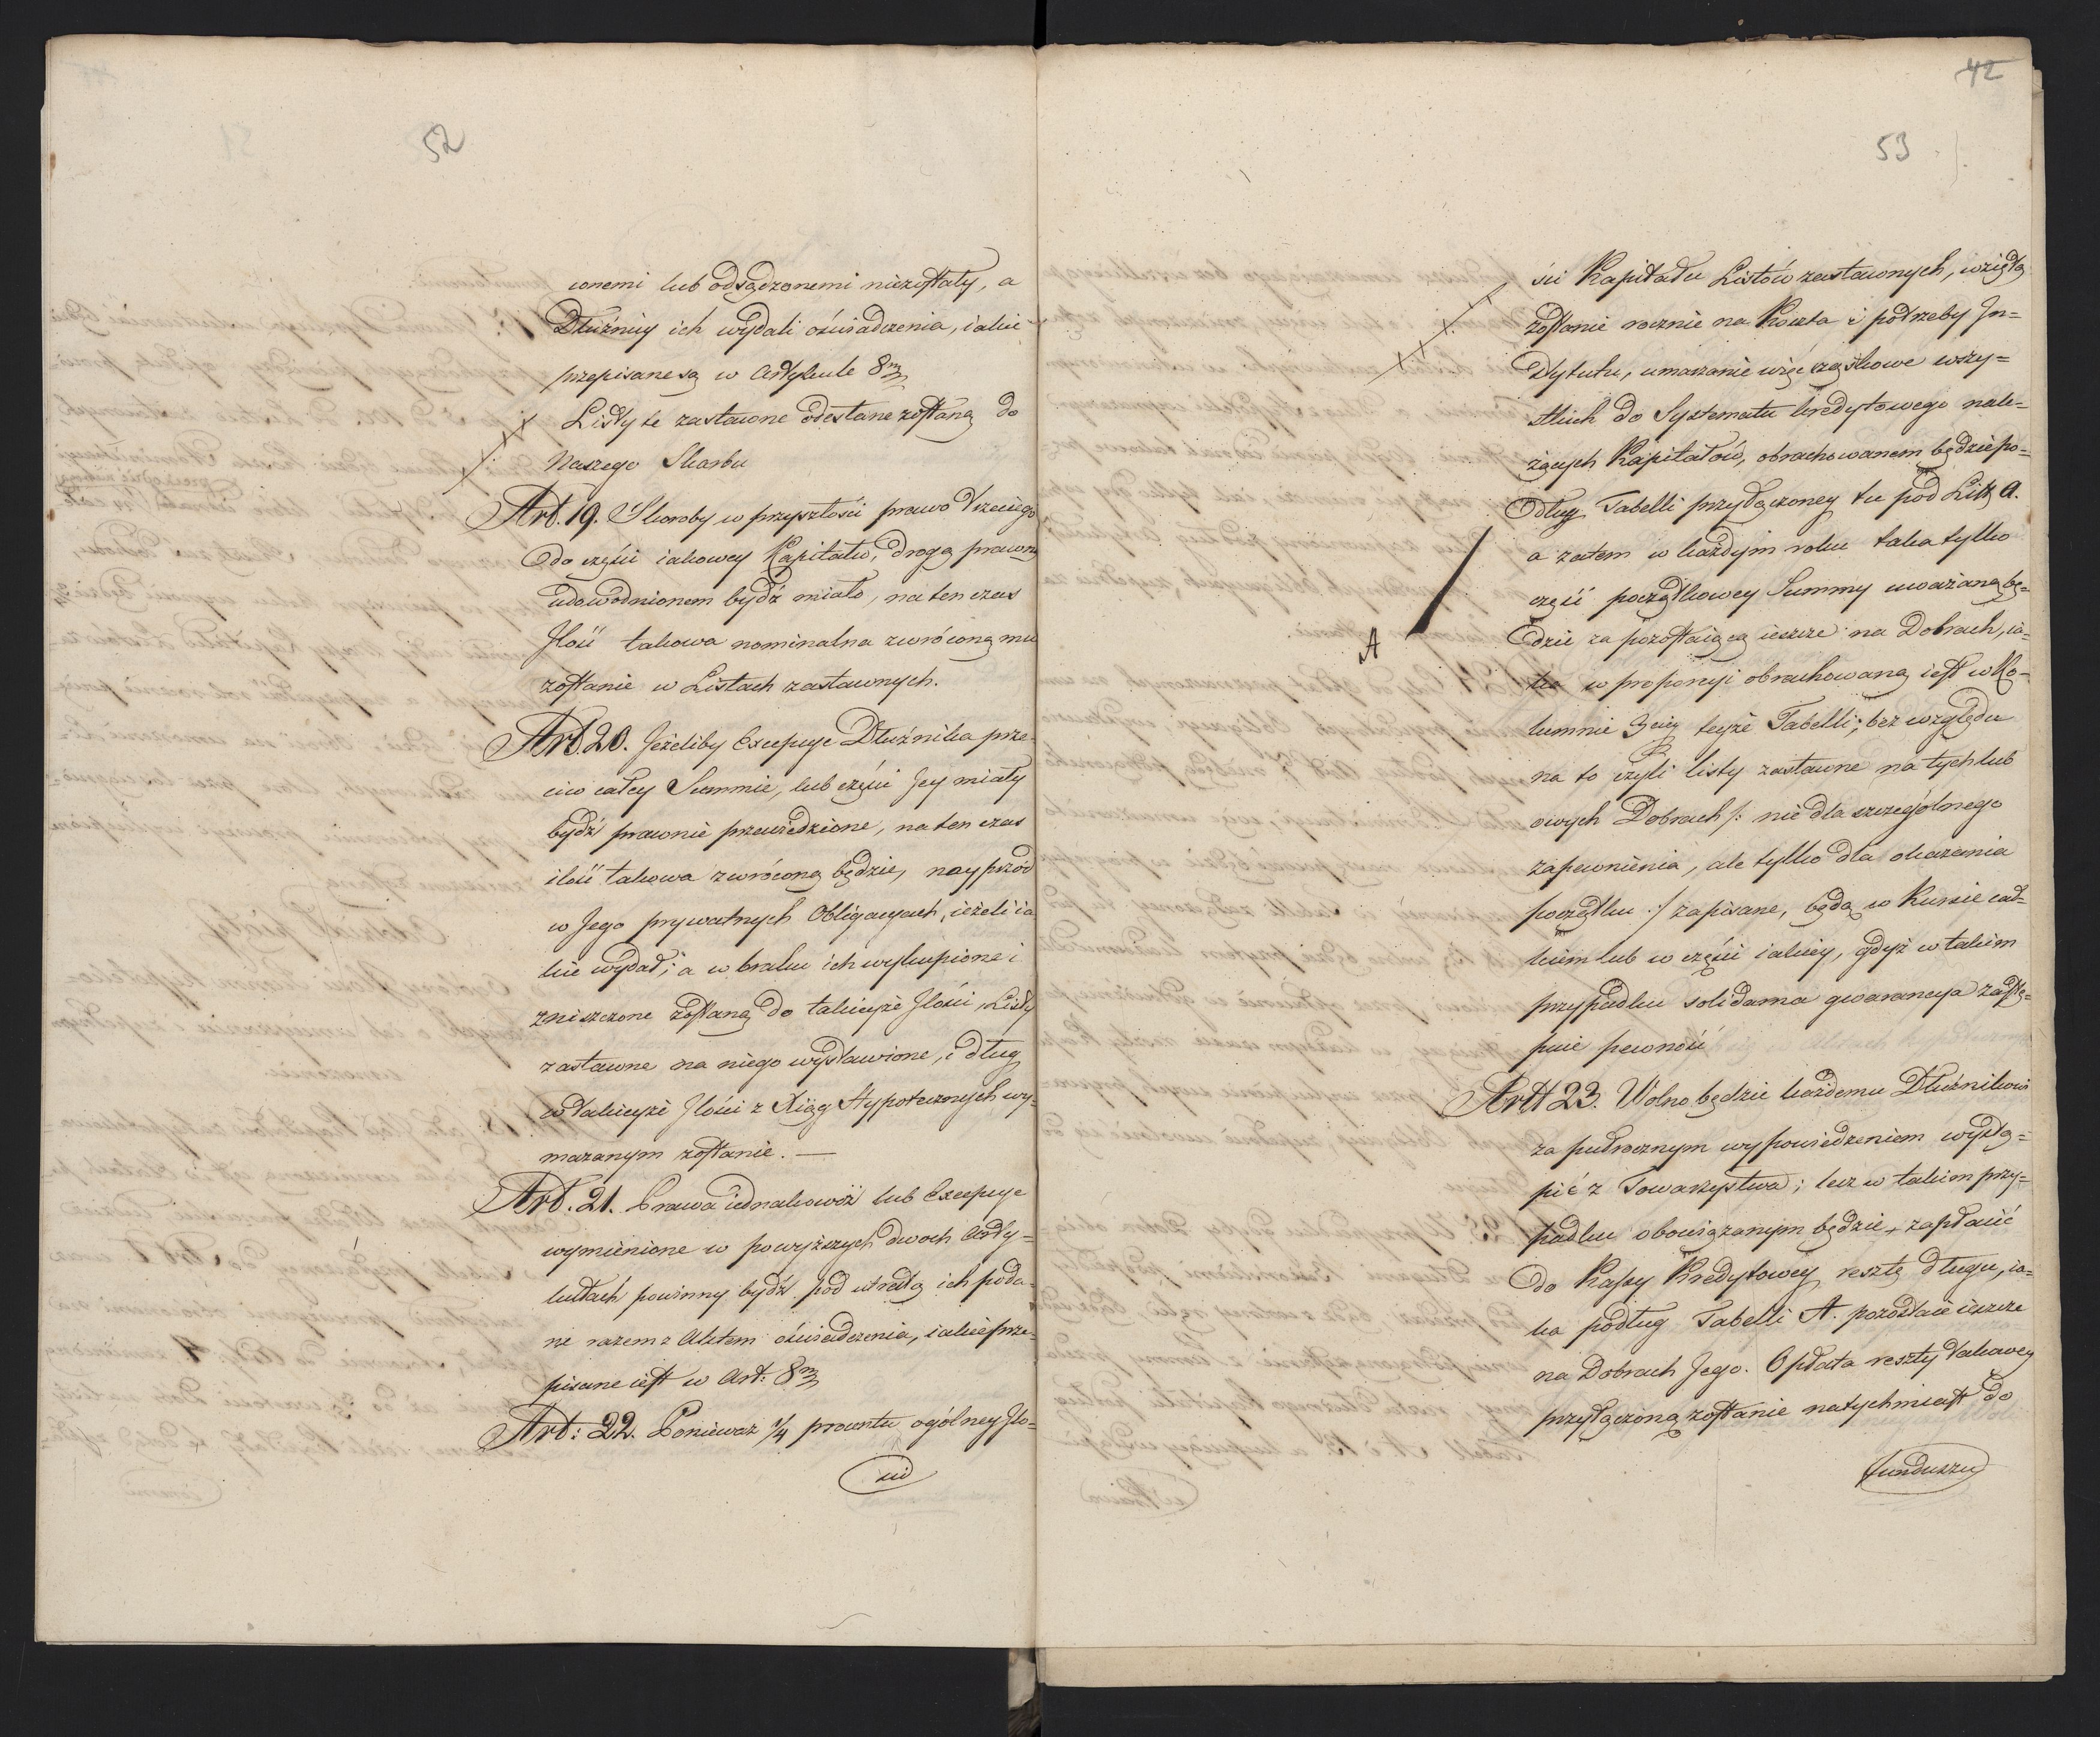 52
wnemi lub odsądzonemi niezostały, a
Dłużnicy ich wydali oświadczenia, iakie
przepisane są w Artykule 8m
Listy te zastawne odesłane zostaną do
Naszego Skarbu
Art. 19. Skoroby w przyszłości prawo trzeciego
do części iakowey Kapitału, drogą prawną
udowodnionem bydź miało, na ten czas
Ilość takowa nominalna zwróconą mu
zostanie w Listach zastawnych.
Art. 20. Jeżeliby Excepcye Dłużnika prze-
ciw całey Summie, lub części Jey miały
bydź prawnie przewiedzione, na ten czas
ilość takowa zwróconą będzie, nayprzód
w Jego prywatnych Obligacyach, ieżeli ia
kie wydał; a w braku ich wykupione i
zniszczone zostaną do takieyże Ilości, Listy
zastawne na niego wystawione, i dług
w takieyże Ilości z Xiąg Hypotecznych wy-
mazanym zostanie. —
Art. 21. Prawa iednakowoż lub Excepcye
wymienione w powyższych dwoch Arty=
kułach powinny bydź pod utratą ich poda-
ne razem z Aktem oświadczenia, iakie prze-
pisane iest w Art: 8m
Art: 22. Ponieważ 1/4 procentu ogólney Ilo=
ści
42
53
ści Kapitału Listów zastawnych, wziętą
zostanie rocznie na Koszta i potrzeby In=
stytutu, umarzanie więc cząstkowe wszy=
stkich do Systematu kredytowego nale=
żących Kapitałów, obrachowanem będzie po=
dług Tabelli przyłączoney tu pod Litt A.
a zatem w każdym roku taka tylko
część początkowey Summy uważaną bę=
dzie za pozostaiącą ieszcze na Dobrach, ia-
A
ka w proporcyi obrachowaną iest w Ko-
lumnie 3ciey teyże Tabelli; bez względu
na to czyli listy zastawne na tych lub
owych Dobrach /: nie dla szczególnego
zapewnienia, ale tylko dla okazania
początku :/ zapisane, będą w Kursie cał-
kiem lub w części iakiey, gdyż w takim
przypadku solidarna gwarancya zastę=
puie pewność
Artt 23. Wolno będzie każdemu Dłużnikowi
za pułrocznym wypowiedzeniem wystą=
pić z Towarzystwa; lecz w takim przy=
padku obowiązanym będzie, zapłacić
do Kassy Kredytowey resztę długu, ia=
ka podług Tabelli A. pozostaie ieszcze
na Dobrach Jego. Opłata reszty takowey
przyłączoną zostanie natychmiast do
funduszu